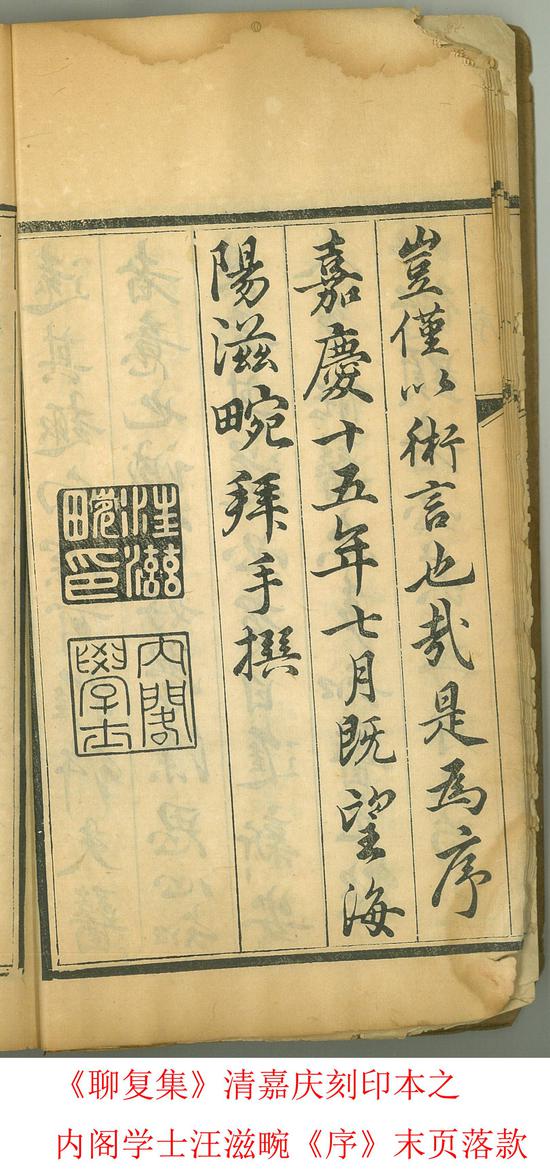 豈僅以術言也哉是為序
嘉慶十五年七月既望海
陽滋畹拜手撰
汪滋
畹印
內閣
學士
《聊复集》清嘉庆刻印本之
内阁学士汪滋畹《序》末页落款